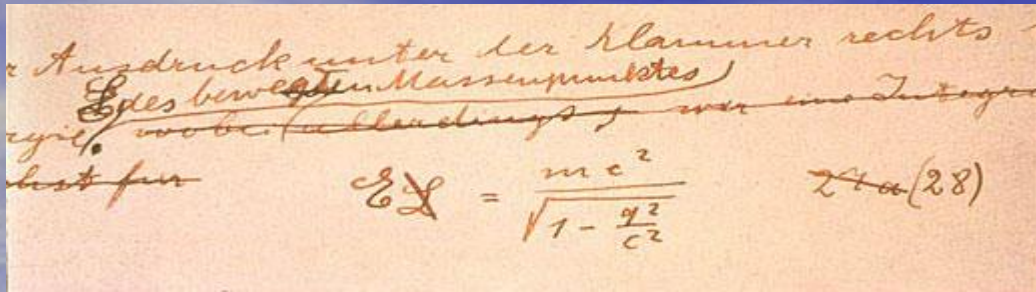 r Ausdruck unter der Klammer rechts
E des bewegten Massenpunktes
rgie, wobei (allerdings, wir eine Integr
chst für
E L = mc² / √(1 - q²/c²) (28)